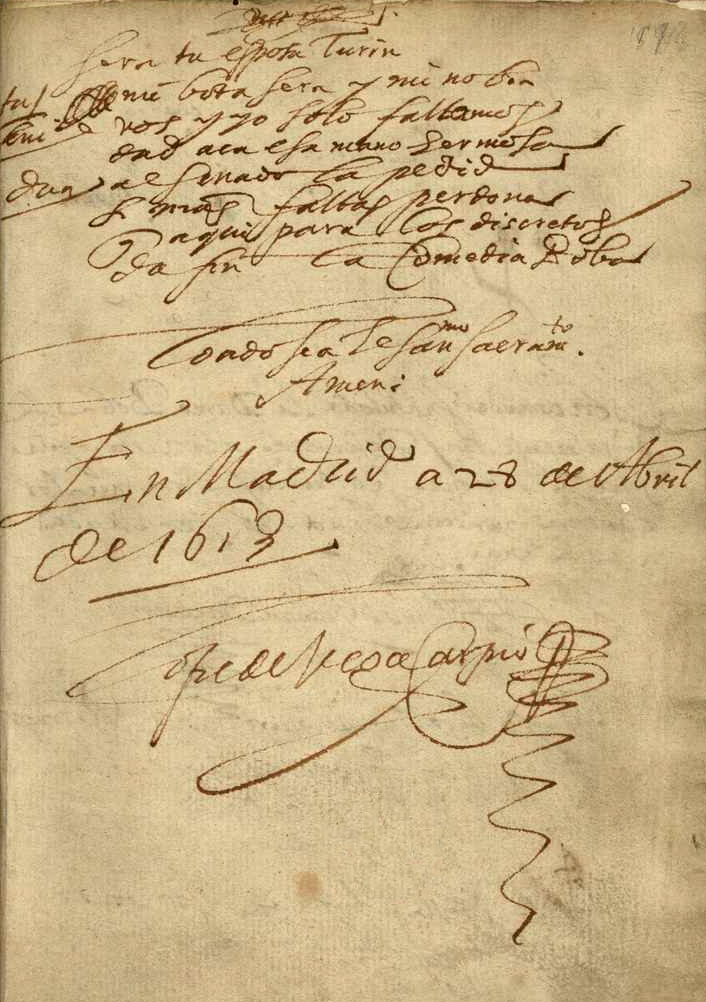 sera tu esposa Turin
tur mi bota sera y mi nobia
feni vos y yo solo faltamos
dad aca esa mano hermosa
dua al senado la pedid
si nras faltas perdona
q aqui para los discretos
da fin la Comedia Boba
Loado sea el Sanmo Sacramto.
Amen
En Madrid a 28 de Abril
de 1613
Lope de Vega Carpio